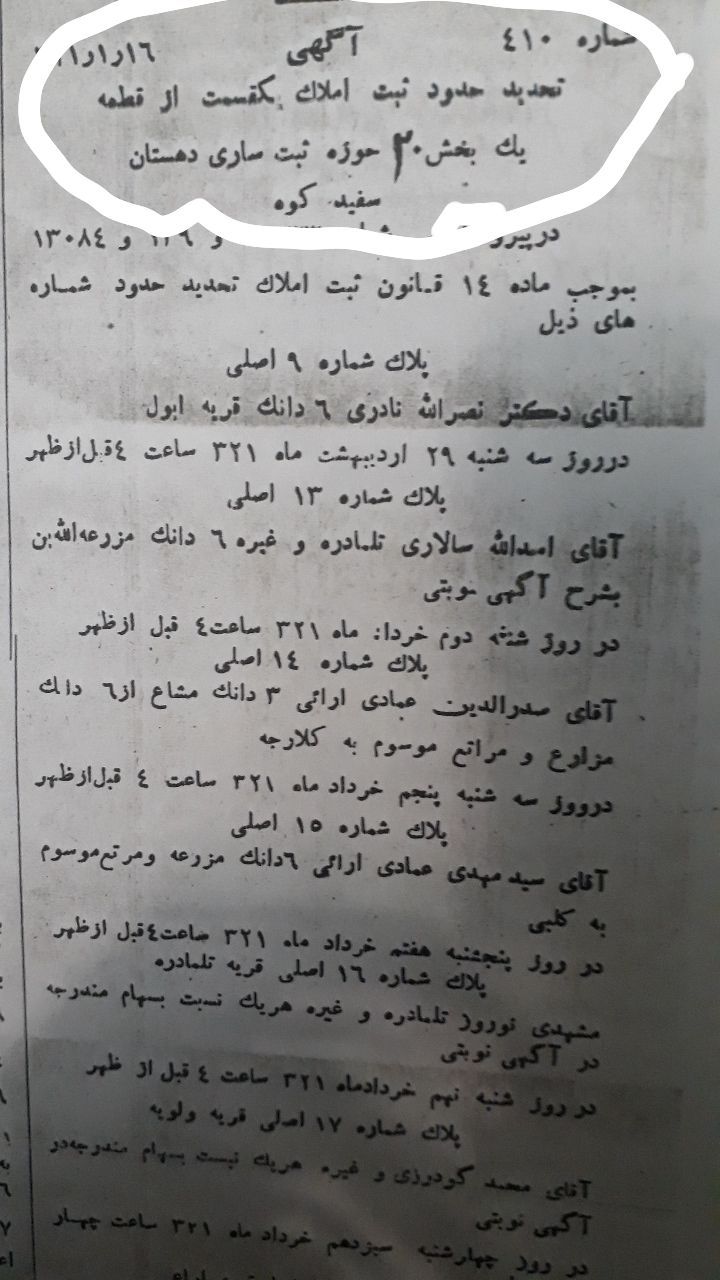 شماره ٤١٠ آگهی
تحدید حدود ثبت املاک یکقسمت از قطعه
یک بخش ٢٠ حوزه ثبت ساری دهستان
سفید کوه
در و ١٣٠٨٤
بموجب ماده ١٤ قانون ثبت املاک تحدید حدود شماره
های ذیل
پلاک شماره ٩ اصلی
آقای دکتر نصرالله نادری ٦ دانک قریه ابول
درروز سه شنبه ٢٩ اردیبهشت ماه ٣٢١ ساعت ٤ قبل‌ازظهر
پلاک شماره ١٣ اصلی
آقای اسدالله سالاری تلمادره و غیره ٦ دانک مزرعه‌الله‌بن
بشرح آگهی نوبتی
در روز شنبه دوم خرداد ماه ٣٢١ ساعت ٤ قبل ازظهر
پلاک شماره ١٤ اصلی
آقای صدرالدین عمادی ارائی ٣ دانک مشاع از ٦ دانک
مزارع و مراتع موسوم به کلارجه
درروز سه شنبه پنجم خرداد ماه ٣٢١ ساعت ٤ قبل‌ازظهر
پلاک شماره ١٥ اصلی
آقای سید مهدی عمادی ارائی ٦ دانک مزرعه ومرتع‌موسوم
به کلبی
در روز پنجشنبه هفتم خرداد ماه ٣٢١ ساعت ٤ قبل ازظهر
پلاک شماره ١٦ اصلی قریه تلمادره
مشهدی نوروز تلمادره و غیره هریک نسبت بسهام مندرجه
در آگهی نوبتی
در روز شنبه نهم خردادماه ٣٢١ ساعت ٤ قبل از ظهر
پلاک شماره ١٧ اصلی قریه ولویه
آقای محمد گودرزی و غیره هریک نبست بسهام مندرجه‌در
آگهی نوبتی
در روز چهارشنبه سیزدهم خرداد ماه ٣٢١ ساعت چهار